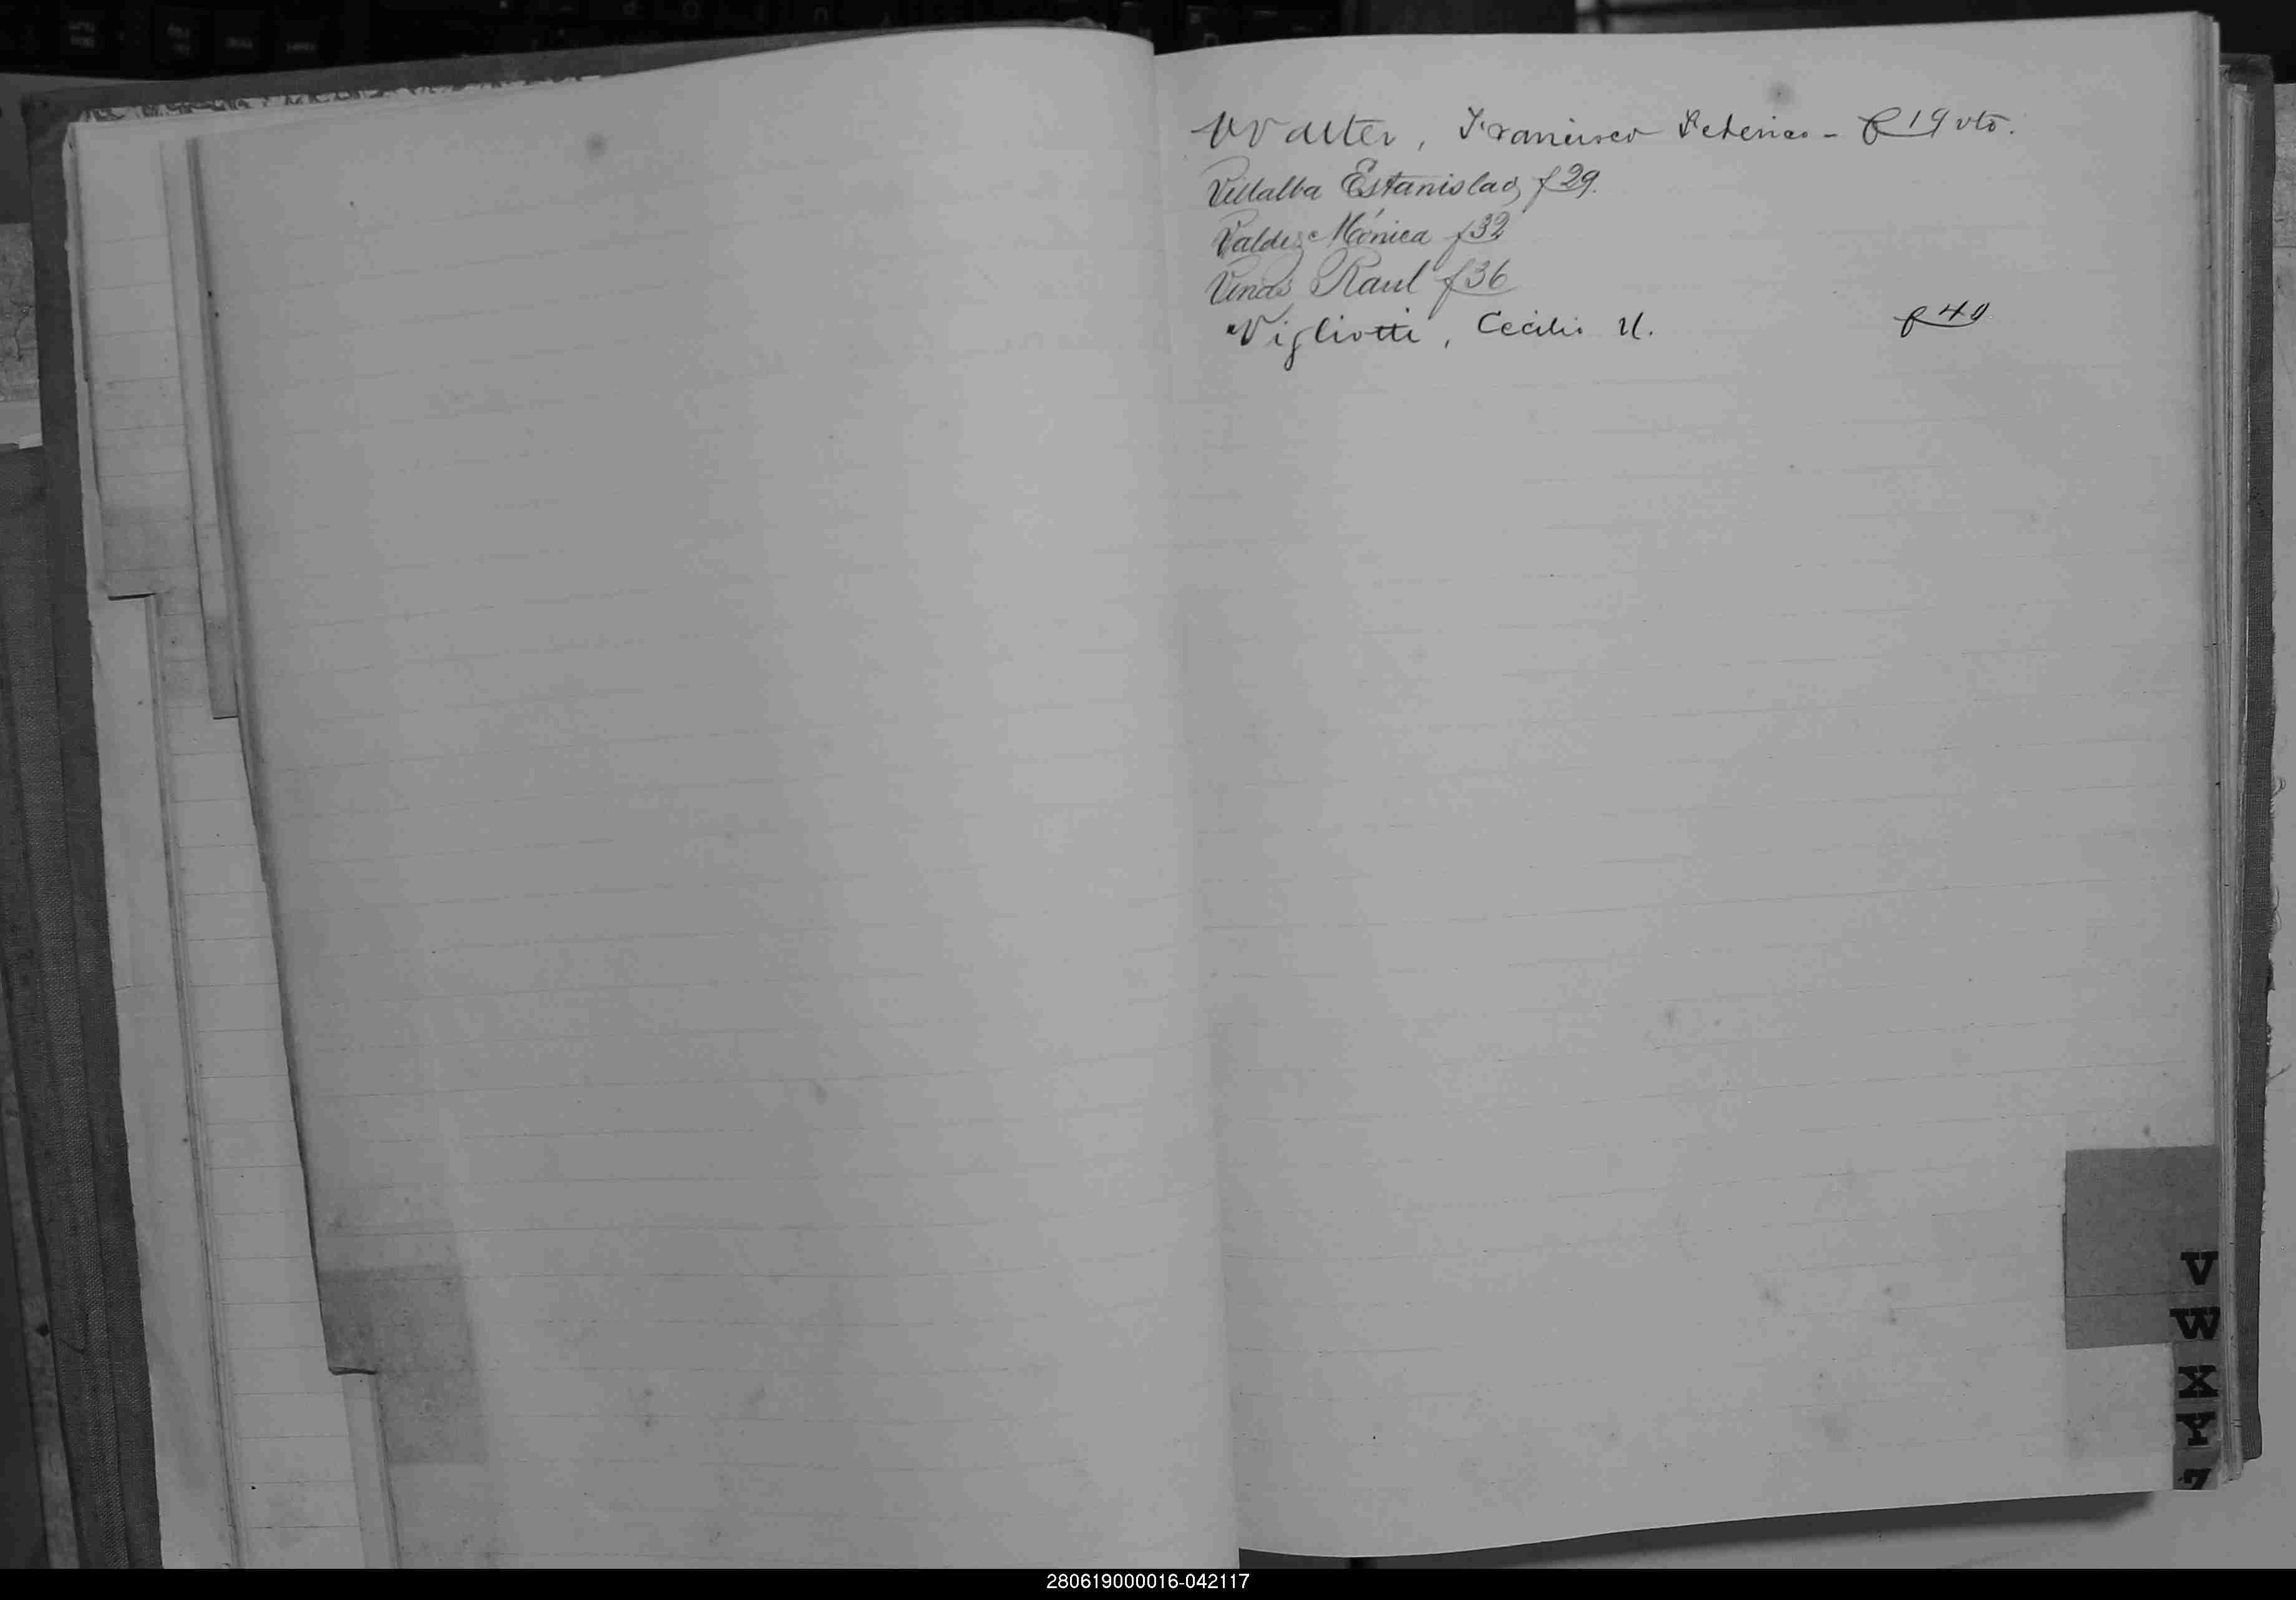 Walter, Francisco Federico - f 19 vto.
Villalba Estanislao, f 29.
Valdez Mónica f 32
Vinas Raul f 36
Vigliotti, Cecilio U. f 40
V
W
X
Y
Z
280619000016-042117